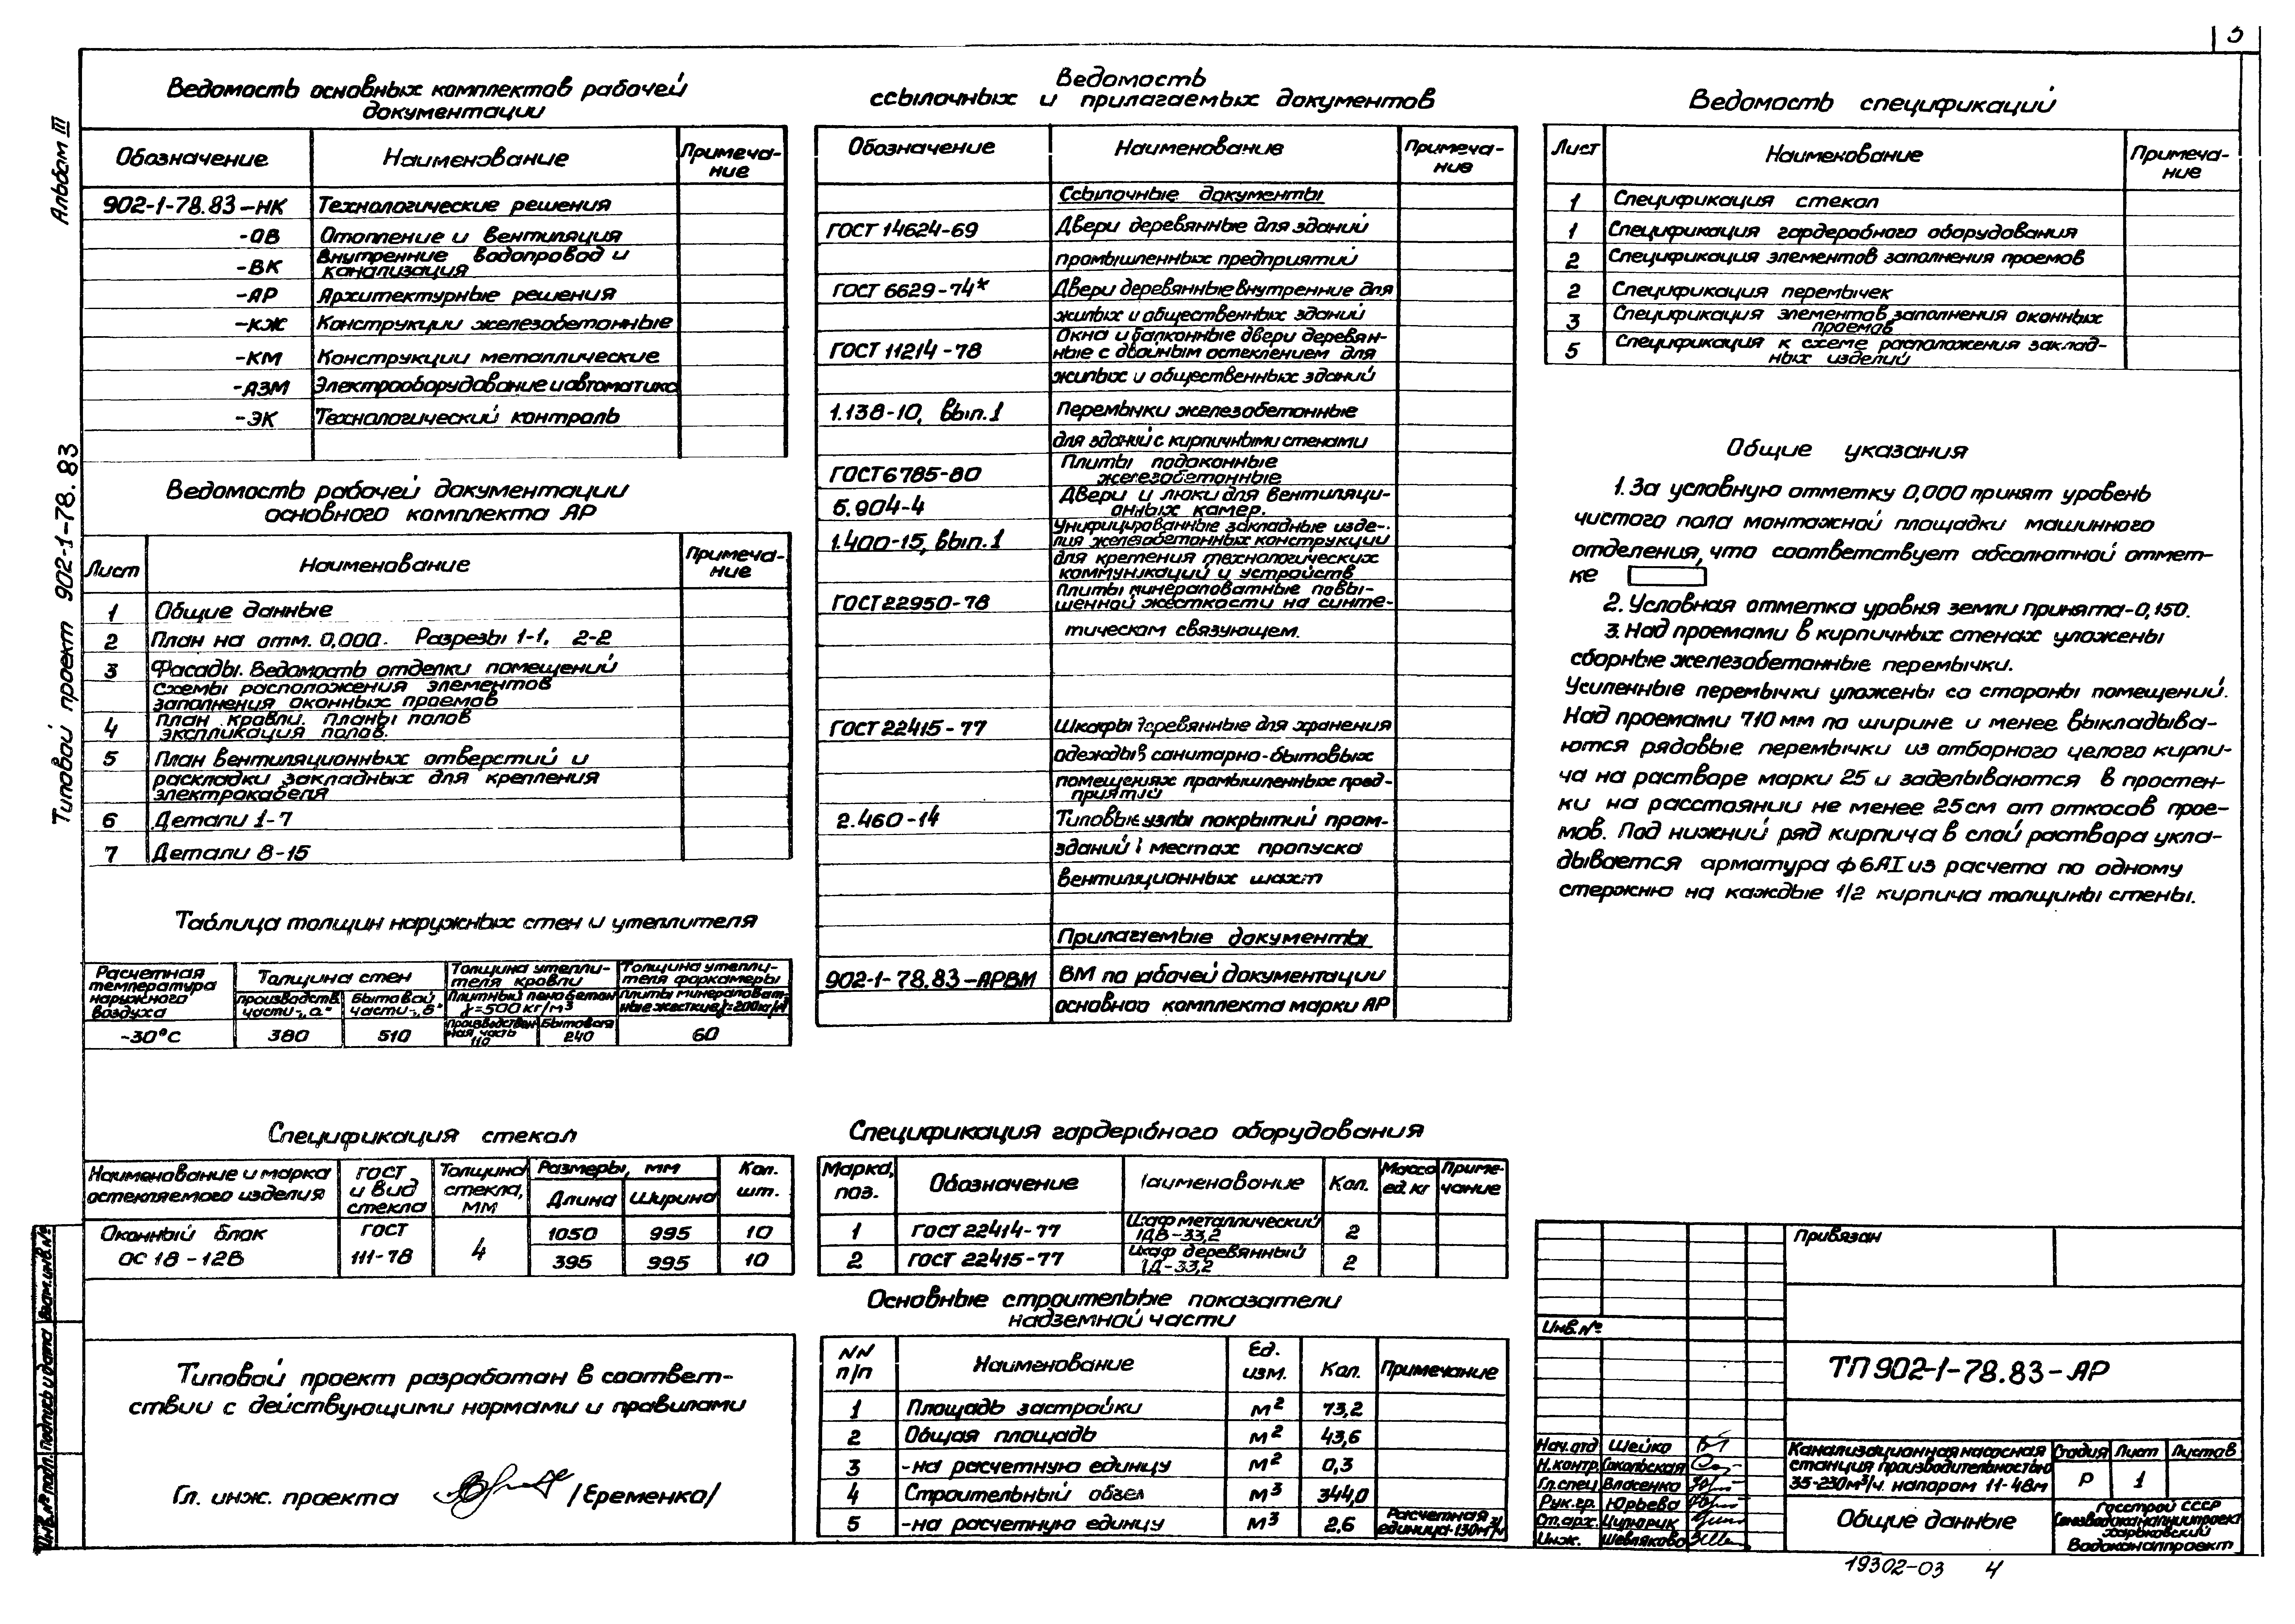 3
Альбом III
Типовой проект 902-1-78.83
Ведомость основных комплектов рабочей
документации
Обозначение Наименование Примеча-
ние
902-1-78.83-НК Технологические решения
-ОВ Отопление и вентиляция
-ВК Внутренние водопровод и
канализация
-АР Архитектурные решения
-КЖ Конструкции железобетонные
-КМ Конструкции металлические
-АЗМ Электрооборудование и автоматика
-ЭК Технологический контроль
Ведомость рабочей документации
основного комплекта АР
Лист Наименование Примеча-
ние
1 Общие данные
2 План на отм. 0,000. Разрезы 1-1, 2-2
3 Фасады. Ведомость отделки помещений
Схемы расположения элементов
заполнения оконных проемов
4 План кровли. Планы полов
экспликация полов.
5 План вентиляционных отверстий и
раскладки закладных для крепления
электрокабеля
6 Детали 1-7
7 Детали 8-15
Таблица толщин наружных стен и утеплителя
Расчетная
температура
наружного
воздуха
Толщина стен
производств.
части-„а"
бытовой
части-„б"
Толщина утепли-
теля кровли
Плитный пенобетон
γ=500 кг/м³
Толщина утепли-
теля форкамеры
Плиты минераловат-
ные жесткие γ=200кг/м³
-30°С 380 510
Производствен
ная часть
110
Бытовая
240
60
Спецификация стекол
Наименование и марка
остекляемого изделия
ГОСТ
и вид
стекла
Толщина
стекла,
мм
Размеры, мм
Длина Ширина
Кол.
шт.
Оконный блок
ОС 18-12В
ГОСТ
111-78
4
1050 995 10
395 995 10
Типовой проект разработан в соответ-
ствии с действующими нормами и правилами
Гл. инж. проекта /Еременко/
Ведомость
ссылочных и прилагаемых документов
Обозначение Наименование Примеча-
ние
Ссылочные документы
ГОСТ 14624-69 Двери деревянные для зданий
промышленных предприятий
ГОСТ 6629-74* Двери деревянные внутренние для
жилых и общественных зданий
ГОСТ 11214-78 Окна и балконные двери деревян-
ные с двойным остеклением для
жилых и общественных зданий
1.138-10, вып.1 Перемычки железобетонные
для зданий с кирпичными стенами
ГОСТ 6785-80 Плиты подоконные
железобетонные
5.904-4 Двери и люки для вентиляци-
онных камер.
1.400-15, вып.1 Унифицированные закладные изде-
лия железобетонных конструкции
для крепления технологических
коммуникаций и устройств
ГОСТ 22950-78 Плиты минераловатные повы-
шенной жесткости на синте-
тическом связующем.
ГОСТ 22415-77 Шкафы деревянные для хранения
одежды в санитарно-бытовых
помещениях промышленных пред-
приятий
2.460-14 Типовые узлы покрытий пром-
зданий в местах пропуска
вентиляционных шахт
Прилагаемые документы
902-1-78.83-АРВМ ВМ по рабочей документации
основного комплекта марки АР
Спецификация гардеробного оборудования
Марка,
поз.
Обозначение Наименование Кол.
Масса
ед. кг
Приме-
чание
1 ГОСТ 22414-77 Шкаф металлический
1ДВ-33,2 2
2 ГОСТ 22415-77 Шкаф деревянный
1Д-33,2 2
Основные строительные показатели
надземной части
NN
п/п
Наименование
Ед.
изм.
Кол. Примечание
1 Площадь застройки м² 73,2
2 Общая площадь м² 43,6
3 -на расчетную единцу м² 0,3
4 Строительный объем м³ 344,0
5 -на расчетную единцу м³ 2,6 Расчетная
единица-130м³/ч
Ведомость спецификаций
Лист Наименование Примеча-
ние
1 Спецификация стекол
1 Спецификация гардеробного оборудования
2 Спецификация элементов заполнения проемов
2 Спецификация перемычек
3 Спецификация элементов заполнения оконных
проемов
5 Спецификация к схеме расположения заклад-
ных изделий
Общие указания
1. За условную отметку 0,000 принят уровень
чистого пола монтажной площадки машинного
отделения, что соответствует абсолютной отмет-
ке
2. Условная отметка уровня земли принята-0,150.
3. Над проемами в кирпичных стенах уложены
сборные железобетонные перемычки.
Усиленные перемычки уложены со стороны помещений.
Над проемами 710 мм по ширине и менее выкладыва-
ются рядовые перемычки из отборного целого кирпи-
ча на растворе марки 25 и заделываются в простен-
ки на расстоянии не менее 25см от откосов прое-
мов. Под нижний ряд кирпича в слой раствора укла-
дывается арматура ф6АI из расчета по одному
стержню на каждые 1/2 кирпича толщины стены.
Привязан
Инв.№
ТП 902-1-78.83-АР
Нач.отд Шейко
Н.контр. Сокольская
Гл.спец Власенко
Рук.гр. Юрьева
Ст.арх. Цупорик
Инж. Шевляково
Канализационная насосная
станция производительностью
35-230м³/ч. напором 11-48м
Стадия Лист Листов
Р 1
Общие данные
Госстрой СССР
Союзводоканалниипроект
Харьковский
Водоканалпроект
Инв.№ подл. Подпись и дата Взам.инв.№
19302-03 4